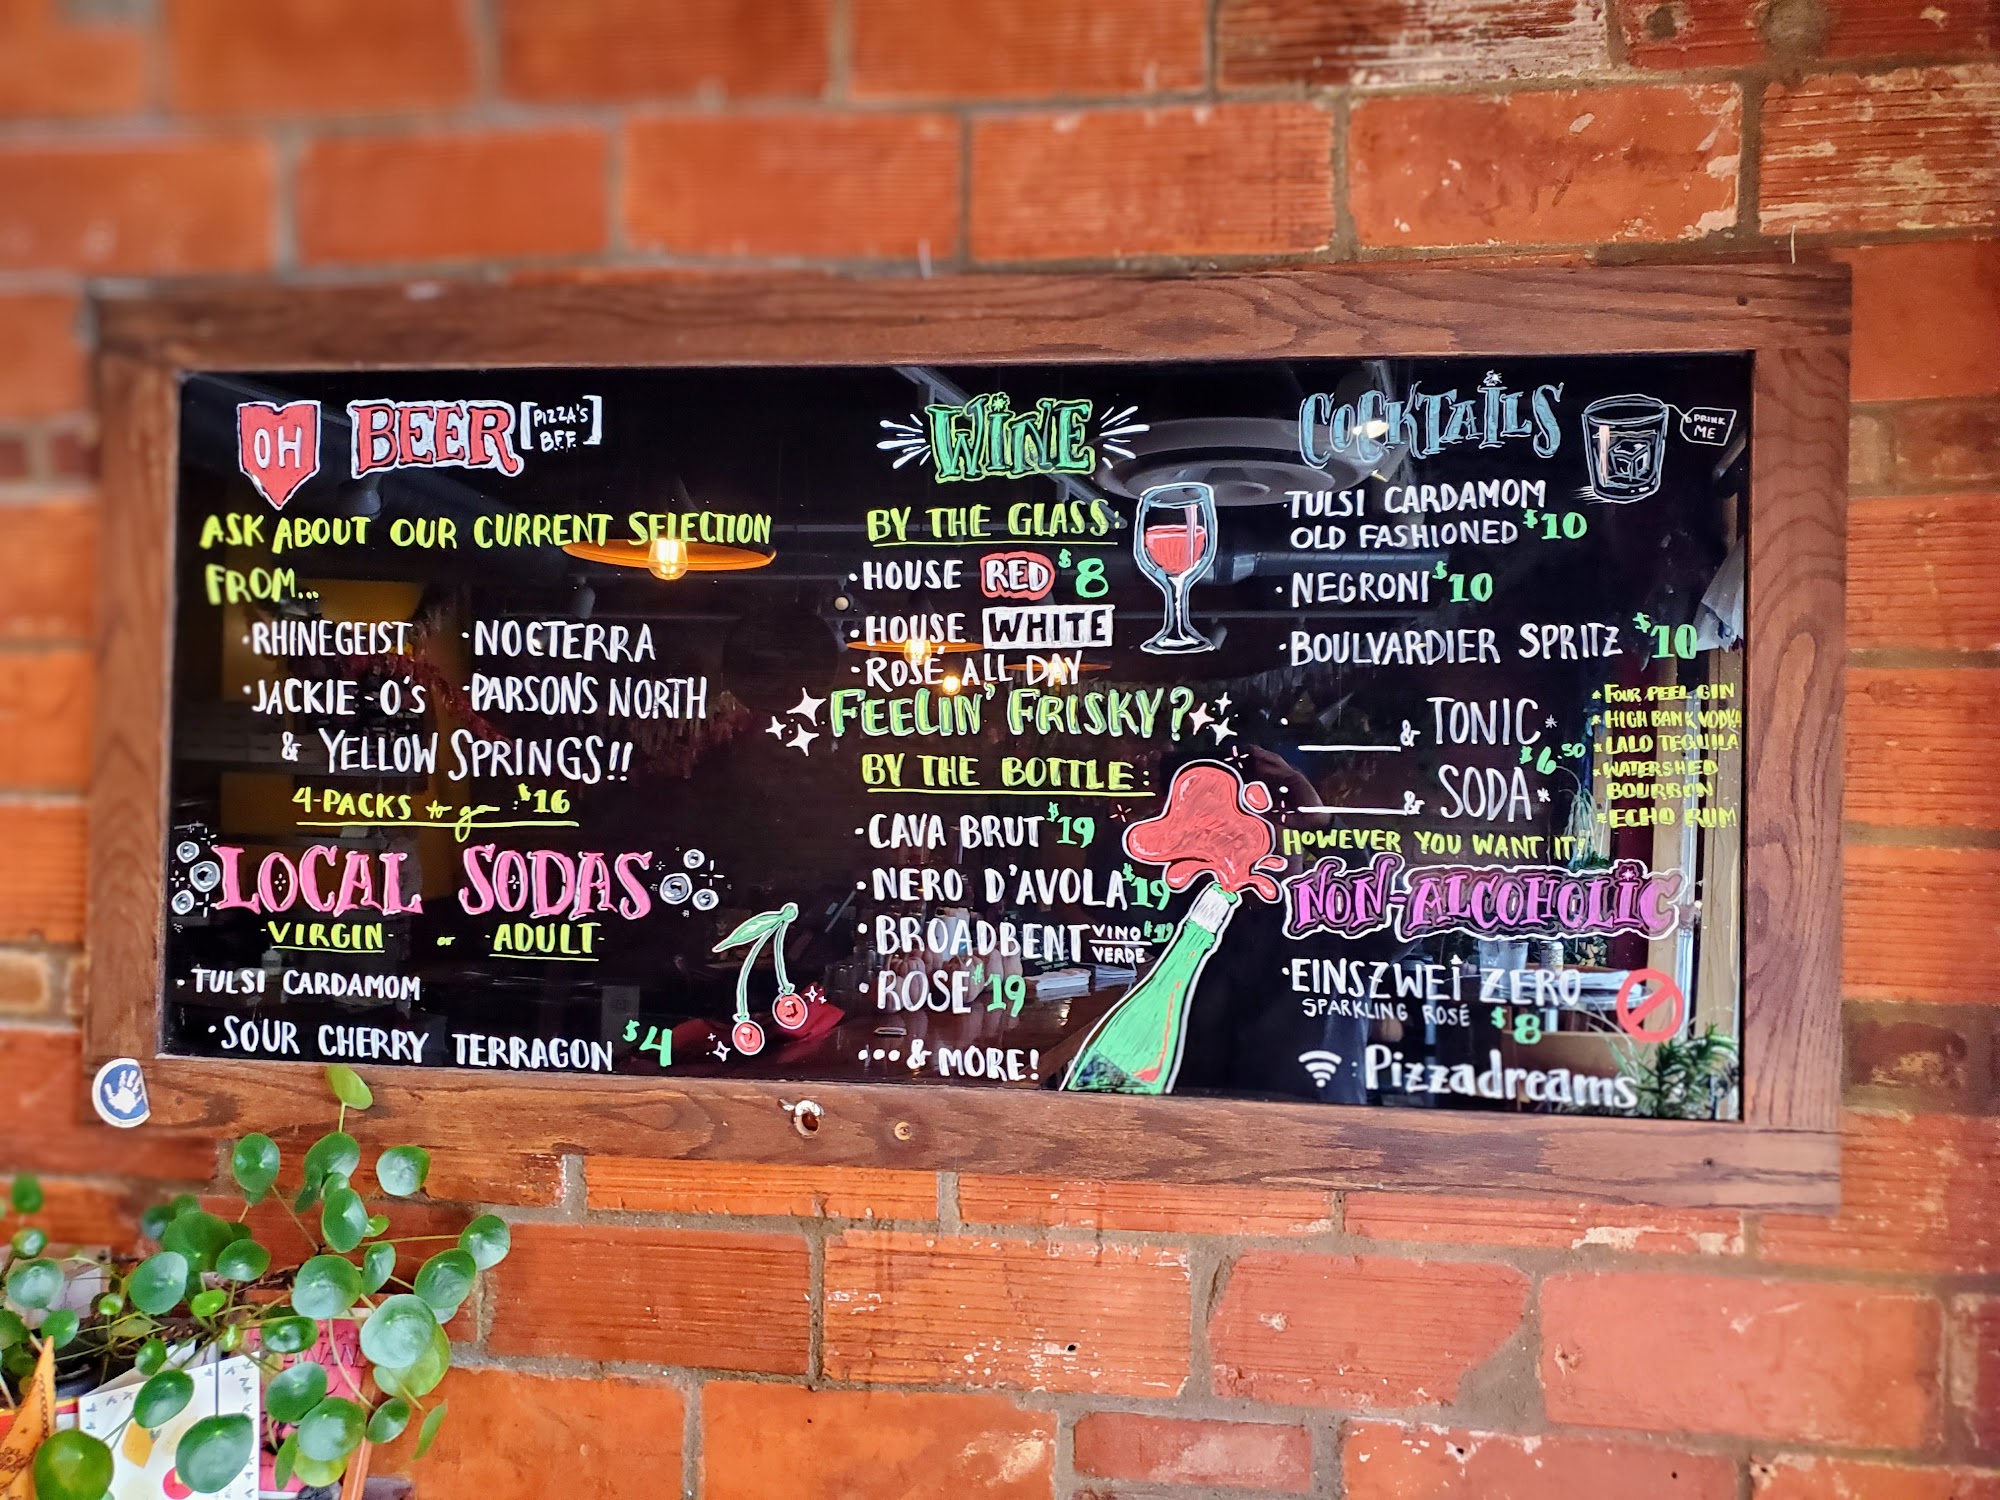 OH
BEER [PIZZA'S
B.F.F.]
ASK ABOUT OUR CURRENT SELECTION
FROM...
·RHINEGEIST ·NOCTERRA
·JACKIE-O's ·PARSONS NORTH
& YELLOW SPRINGS!!
4-PACKS to go :$16
LOCAL SODAS
-VIRGIN- or -ADULT-
·TULSI CARDAMOM
·SOUR CHERRY TERRAGON $4
WINE
BY THE GLASS:
·HOUSE RED $8
·HOUSE WHITE
·ROSÉ ALL DAY
FEELIN' FRISKY?
BY THE BOTTLE:
·CAVA BRUT $19
·NERO D'AVOLA $19
·BROADBENT VINO VERDE $19
·ROSÉ $19
... & MORE!
COCKTAILS
DRINK
ME
·TULSI CARDAMOM
OLD FASHIONED $10
·NEGRONI $10
·BOULVARDIER SPRITZ $10
·______& TONIC*
$6.50
·______& SODA*
*FOUR PEEL GIN
*HIGH BANK VODKA
*LALO TEQUILA
*WATERSHED
BOURBON
*ECHO RUM
HOWEVER YOU WANT IT!
NON-ALCOHOLIC
·EINSZWEI ZERO
SPARKLING ROSÉ $8
: Pizzadreams